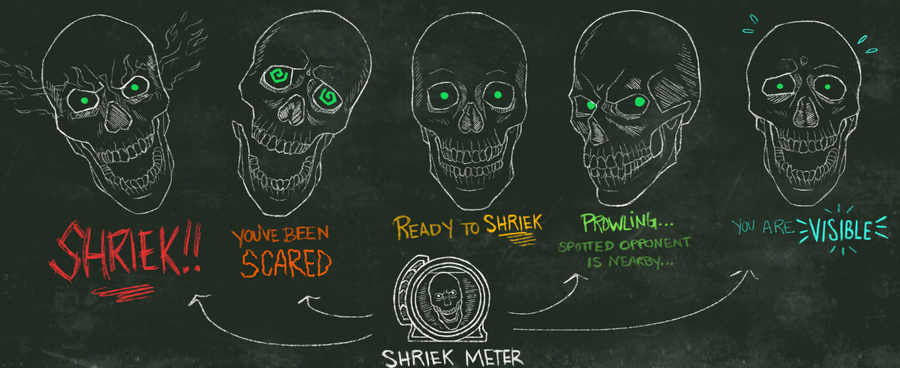 SHRIEK!!
YOU'VE BEEN
SCARED
READY TO SHRIEK
PROWLING...
SPOTTED OPPONENT
IS NEARBY...
YOU ARE VISIBLE
SHRIEK METER